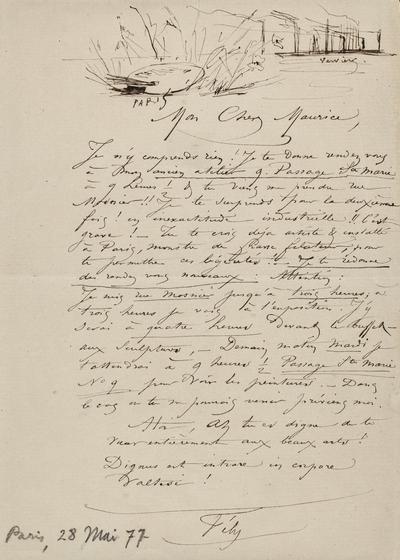 PARIS
Verviers.
Mon Cher Maurice,
Je n'y comprends rien ! Je te donne rendez vous
à mon ancien atelier 9. Passage Ste Marie
à 9 heures ! & tu viens me prendre rue
Mosnier !! ? Je te surprends pour la deuxième
fois ! en inexactitude industrielle !! C'est
grave ! — Tu te crois déjà artiste & installé
à Paris, monstre de pour
te permettre ces — Je te redonne
des rendez vous nouveaux : Attention :
Je suis rue Mosnier jusqu'à trois heures ; à
trois heures je vais à l'exposition. J'y
serai à quatre heures Devant le buffet
aux Sculptures, — Demain matin Mardi je
t'attendrai à 9 heures ! Passage Ste Marie
No 9 pour voir les peintures. — Dans
le cas où tu ne pourrais venir préviens moi.
Ah tu es digne de te
vouer entièrement aux beaux arts !
Dignus est intrare in corpore
!
Fély
Paris, 28 Mai 77